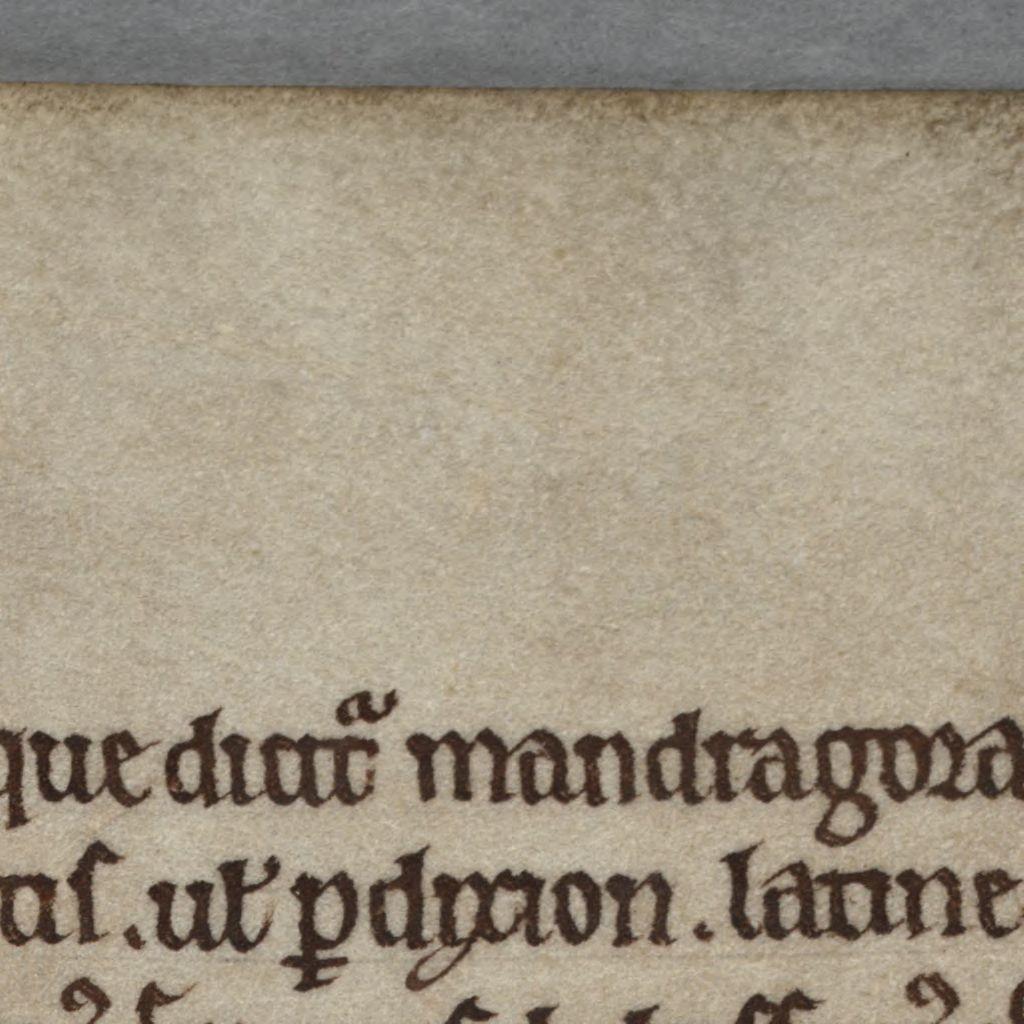 que dicitᷓ mandragora
tis. ul̕ ꝑdixion. latine